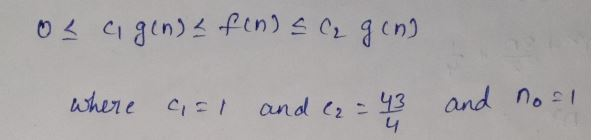 0 ≤ c₁ g(n) ≤ f(n) ≤ c₂ g(n)
where c₁ = 1 and c₂ = 43/4 and n₀ = 1